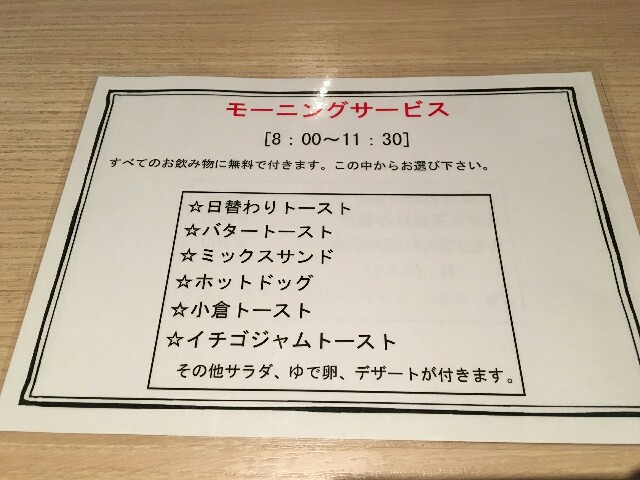 モーニングサービス
[8：00～11：30]
すべてのお飲み物に無料で付きます。この中からお選び下さい。
☆日替わりトースト
☆バタートースト
☆ミックスサンド
☆ホットドッグ
☆小倉トースト
☆イチゴジャムトースト
その他サラダ、ゆで卵、デザートが付きます。